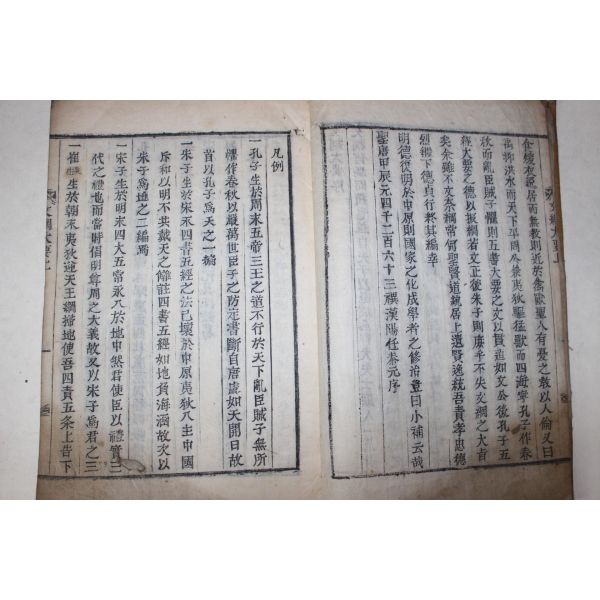 食煖衣逸居而無教則近於禽獸聖人有憂之教以人倫又曰
禹抑洪水而天下平周公兼夷狄驅猛獸而四海寧孔子作春
秋而亂臣賊子懼則五書大要之文以賢遠如文公後孔子五
經大要之德以振綱若文正後朱子則庶乎不失文綱之大旨
矣余雖不文泰綱常何聖賢道統居上遺賢逸統吾責孝忠德
烈錫下德貞行終其編幸
明德復明於中原則國家之化成學者之修治豈曰小補云哉
聖唐甲辰元四千二百六十三禩漢陽任泰元序
凡例
一孔子生於周末五帝三王之道不行於天下亂臣賊子無所
懼作春秋以嚴萬世臣子之防定書斷自唐虞如天開日故
首以孔子爲天之一編
一朱子生於宋氶四書五經之法已壞於中原夷狄入主中國
斥和以明不共戴天之讎註四書五經如地負海涵故次以
朱子爲地之二編焉
一宋子生於明末四大五常永入於地中然君使臣以禮實三
代之禮也而當時倡明尊周之大義故又以朱子爲君之三
一崔生於朝末夷狄迎天王綱掃地使吾四責五條上告下
文綱大要上